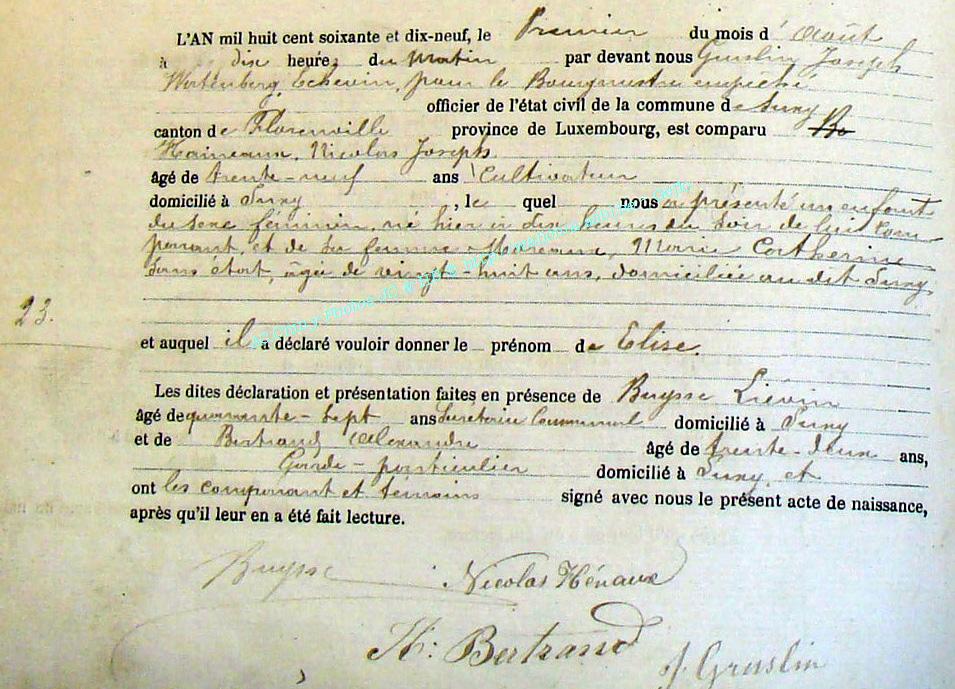 L'AN mil huit cent soixante et dix-neuf, le Premier du mois d' Août
à dix heures du matin par devant nous Gruslin Joseph
Wirtenberg, Echevin, pour le Bourgmestre empêché
officier de l'état civil de la commune de Suxy
canton de Florenville province de Luxembourg, est comparu
Haineaux, Nicolas Joseph
âgé de trente-neuf ans Cultivateur
domicilié à Suxy, le quel nous a présenté un enfant
du sexe féminin, né hier à dix heures du soir de lui com
parant, et de sa femme Marie Catherine
sans état, âgée de vingt-huit ans, domiciliée au dit Suxy
23.
et auquel il a déclaré vouloir donner le prénom de Elise.
Les dites déclaration et présentation faites en présence de Buysse Liévin
âgé de quarante-sept ans Secrétaire Communal domicilié à Suxy
et de Bertrand Alexandre âgé de trente-deux ans,
Garde-particulier domicilié à Suxy, et
ont les comparant et témoins signé avec nous le présent acte de naissance,
après qu'il leur en a été fait lecture.
Buysse Nicolas Hénaux
Bertrand
J. Gruslin